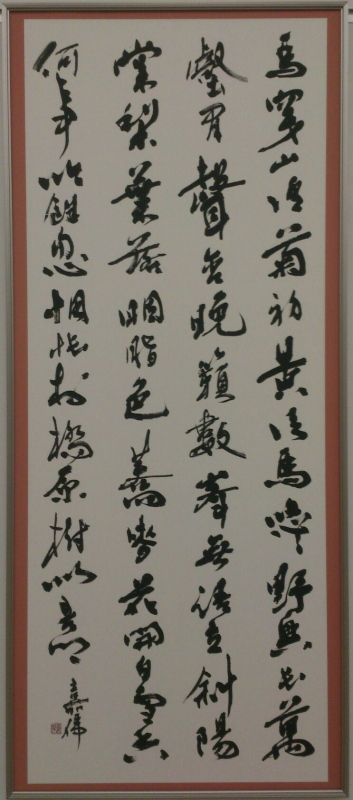 馬穿山徑菊初黃信馬悠悠野興長萬
壑有聲含晚籟數峯無語立斜陽
棠梨葉落胭脂色蕎麥花開白雪香
何事吟餘忽惆悵村橋原樹似吾鄉
嘉偉